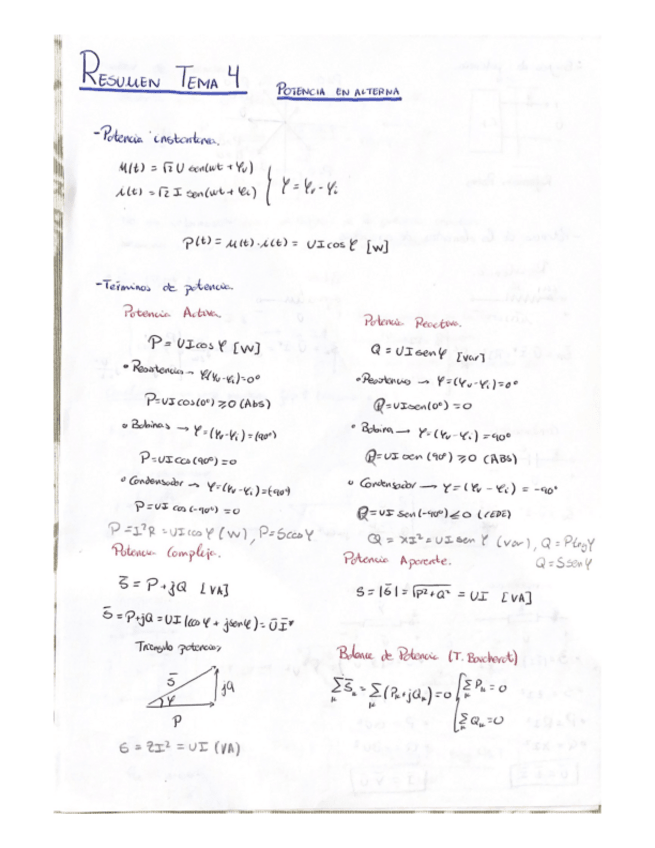 RESUMEN TEMA 4 POTENCIA EN ALTERNA
-Potencia instantanea.
u(t) = √2 U sen(wt + φv)
i(t) = √2 I sen(wt + φi) } φ = φv - φi
P(t) = u(t)·i(t) = UI cos φ [W]
-Terminos de potencia.
Potencia Activa.
P = UI cos φ [W]
• Resistencia → φ(φv-φi)=0°
P=UI cos(0°) ≥0 (Abs)
• Bobinas → φ=(φv-φi)=(90°)
P=UI cos(90°)=0
• Condensador → φ=(φv-φi)=(-90°)
P=UI cos(-90°)=0
P=I²R = UI cos φ (W), P=S cos φ
Potencia Reactiva.
Q = UI sen φ [Var]
• Resistencia → φ=(φv-φi)=0°
Q=UI sen(0°)=0
• Bobina → φ=(φv-φi)=90°
Q=UI sen(90°) ≥0 (ABS)
• Condensador → φ=(φv-φi) = -90°
Q=UI sen(-90°) ≤0 (CEDE)
Q = XI² = UI sen φ (Var), Q = P tg φ
Q = S sen φ
Potencia Compleja.
S̄ = P + jQ [VA]
S̄ = P+jQ = UI (cos φ + j sen φ) = ŪĪ*
Triangulo potencias
S̄
φ
jQ
P
S = ZI² = UI (VA)
Potencia Aparente.
S = |S̄| = √P²+Q² = UI [VA]
Balance de Potencia (T. Boucherot)
∑S̄ₖ = ∑(Pₖ+jQₖ)=0 { ∑Pₖ=0
∑Qₖ=0